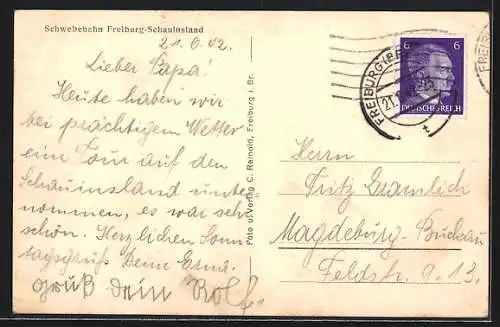 Schwebebahn Freiburg-Schauinsland
21.6.42.
Lieber Papa!
Heute haben wir
bei prächtigem Wetter
eine Tour auf den
Schauinsland unter-
nommen, es war sehr
schön. Herzlichen Sonn-
tagsgruß. Deine Erna.
Gruß dein Rolf.
Foto u. Verlag C. Reinold, Freiburg i. Br.
FREIBURG (BREISGAU)
21.
t
FREIB
6 6
DEUTSCHES REICH
Herrn
Fritz Gramlich
Magdeburg-Buckau
Feldstr. 9.13.